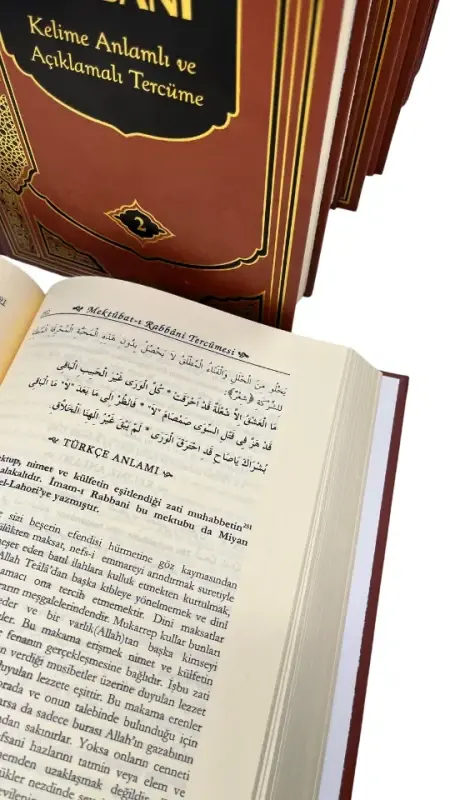 BANİ
Kelime Anlamlı ve
Açıklamalı Tercüme
2
Mektûbat-ı Rabbânî Tercümesi
يَخْلُو مِنَ الْخَلَلِ وَالْفَنَاءُ الْمُطْلَقُ لَا يَحْصُلُ بِدُونِ هَذِهِ الْمَحَبَّةِ الْمُحْرِقَةِ
لِلشِّرْكَةِ ﴿شِعْرٌ﴾:
مَا الْعِشْقُ اِلَّا شُعْلَةٌ قَدْ اَحْرَقَتْ * كُلَّ الْوَرٰى غَيْرَ الْحَبِيبِ الْبَاقِى
قَدْ هَزَّ فِى قَتْلِ السِّوٰى صَمْصَامَ "لَا" * فَانْظُرْ اِلٰى مَا بَعْدَ "لَا" مَا الْبَاقِى
بُشْرَاكَ يَاصَاحِ قَدِ احْتَرَقَ الْوَرٰى * لَمْ يَبْقَ غَيْرُ اِلٰهِنَا الْخَلَّاقِ
TÜRKÇE ANLAMI
nimet ve külfetin eşitlendiği zati muhabbetin
alakalıdır. İmam-ı Rabbani bu mektubu da Miyan
el-Lahori'ye yazmıştır.
sizi beşerin efendisi hürmetine göz kaymasından
maksat, nefs-i emmareyi arındırmak suretiyle
eden batıl ilahlara kulluk etmekten kurtulmak,
Allah Teâlâ'dan başka kıbleye yönelmemek ve dinî
amacı ona tercih etmemektir. Dini maksatlar
meşgalelerindendir. Mukarrep kullar bunları
ve bir varlık(Allah)tan başka kimseyi
Bu makama erişmek nimet ve külfetin
fenanın gerçekleşmesine bağlıdır. İşbu zati
verdiği musibetler üzerine duyulan lezzet
duyulan lezzete eşittir. Bu makama erenler
orada ve onun talebinde bulunduğu için
sadece burası Allah'ın gazabının
sakınırlar. Yoksa onların cenneti
hazlarını tatmin veya elem ve
uzaklaşmak değildir.
nezdinde